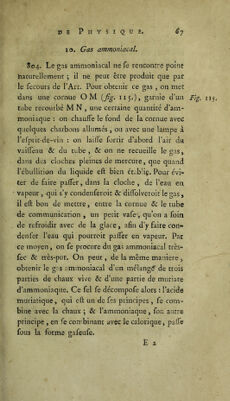 DE PHYSIQUE. 67
10. Gas ammoniacal.
804. Le gas ammoniacal ne se rencontre point
naturellement ; il ne peut être produit que par
le secours de l'Art. Pour obtenir ce gas, on met
dans une cornue O M (fig. 115.), garnie d'un Fig. 115.
tube recourbé M N, une certaine quantité d'am-
moniaque : on chauffe le fond de la cornue avec
quelques charbons allumés, ou avec une lampe à
l'esprit-de-vin : on laisse sortir d'abord l'air du
vaisseau & du tube, & on ne recueille le gas,
dans des cloches pleines de mercure, que quand
l'ébullition du liquide est bien établie. Pour évi-
ter de faire passer, dans la cloche, de l'eau en
vapeur, qui s'y condenseroit & dissolveroit le gas,
il est bon de mettre, entre la cornue & le tube
de communication, un petit vase, qu'on a soin
de refroidir avec de la glace, afin d'y faire con-
denser l'eau qui pourroit passer en vapeur. Par
ce moyen, on se procure du gas ammoniacal très-
sec & très-pur. On peut, de la même maniere,
obtenir le gas ammoniacal d'un mélange de trois
parties de chaux vive & d'une partie de muriate
d'ammoniaque. Ce sel se décompose alors : l'acide
muriatique, qui est un de ses principes, se com-
bine avec la chaux ; & l'ammoniaque, son autre
principe, en se combinant avec le calorique, passe
sous la forme gaseuse.
E 2